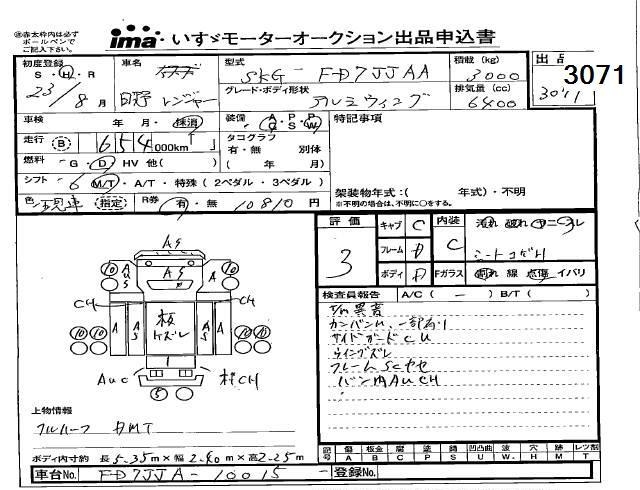 ※赤太枠内は必ず
ボールペンで
ご記入下さい。
ima いすゞモーターオークション出品申込書
初度登録 S・H・R 23/8月
車名 日野 レンジャー
型式 SKG-FD7JJAA
積載(kg) 3000
出品 3071
グレード・ボディ形状 アルミウィング
排気量(cc) 6400
車検 年 月・抹消
装備 A・P・P C・S・W
特記事項
走行 B 654,000km
タコグラフ 有・無 別体
燃料 G・D HV 他( )
( 年 月)
シフト 6 M/T・A/T・特殊(2ペダル・3ペダル)
架装物年式:( 年式)・不明
※不明の場合は、不明に○をする。
色 指定 R券 有・無 10810円
評価 3
キャブ C 内装 C 汚れ 破れ ヤニ コゲ スレ
フレーム D シートコゲ
ボディ D Fガラス 割れ 線 点傷 イバリ
検査員報告 A/C( - ) B/T( )
T/M異音
サイドガードCU
ウイングズレ
AS
10 AuS AS 10
CH CH
10 10 A AS 板 ズレ AS A 10 10
1
AuC 5 CH
上物情報
フルハーフ
ボディ内寸約 長5.35m×幅2.40m×高2.25m
記号 傷 板金 腐 塗 錆 凹凸曲 波 穴 跡 レツ割
A B C P S U W H M T
車台No. FD7JJA-10015 登録No.